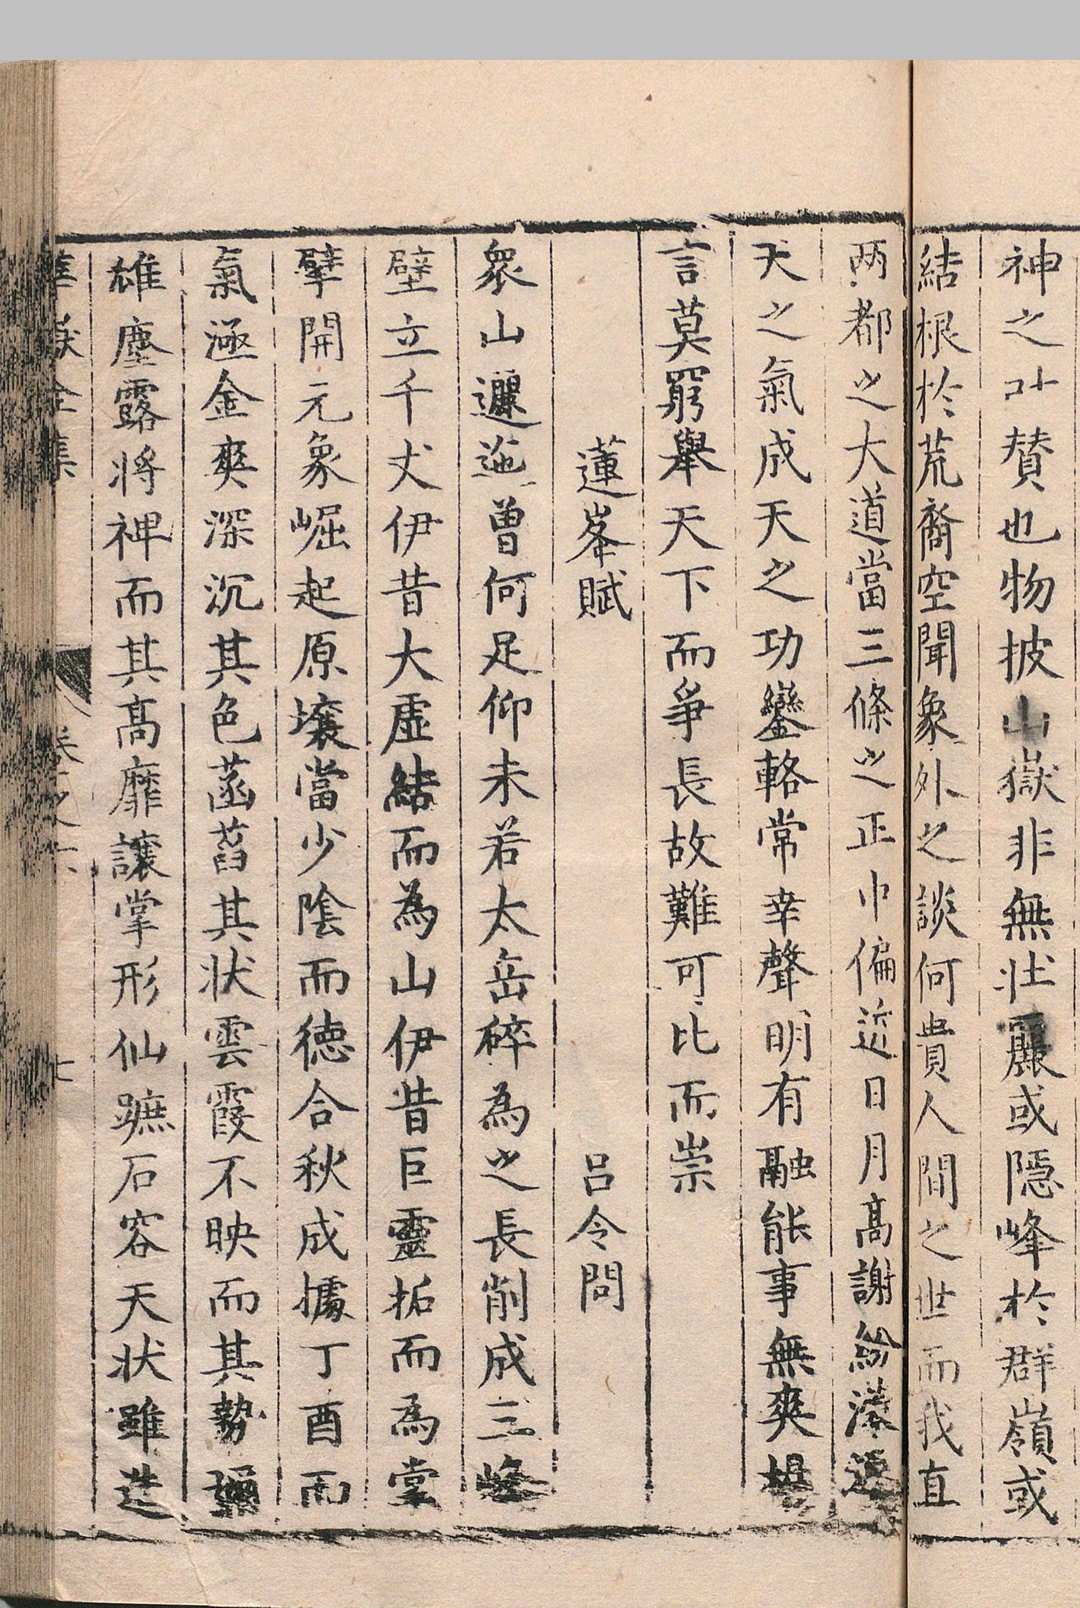 神之外贊也物披山嶽非無壯麗或隱峰於群嶺或
結根於荒裔空聞象外之談何貴人間之世而我直
兩都之大道當三條之正中偏近日月高謝紛湊逼
天之氣成天之功鑾輅常幸聲明有融能事無爽楊
言莫窮舉天下而爭長故難可比而崇
蓮峯賦
呂令問
眾山邐迤曾何足仰未若太岳碎為之長削成三峰
壁立千丈伊昔大虛結而為山伊昔巨靈拓而為掌
擘開元象崛起原壤當少陰而德合秋成據丁酉而
氣涵金爽深沉其色菡萏其狀雲霞不映而其勢逼
雄塵露將裨而其高靡讓掌形仙蹠石容天狀雖造
華嶽全集
卷之六
七